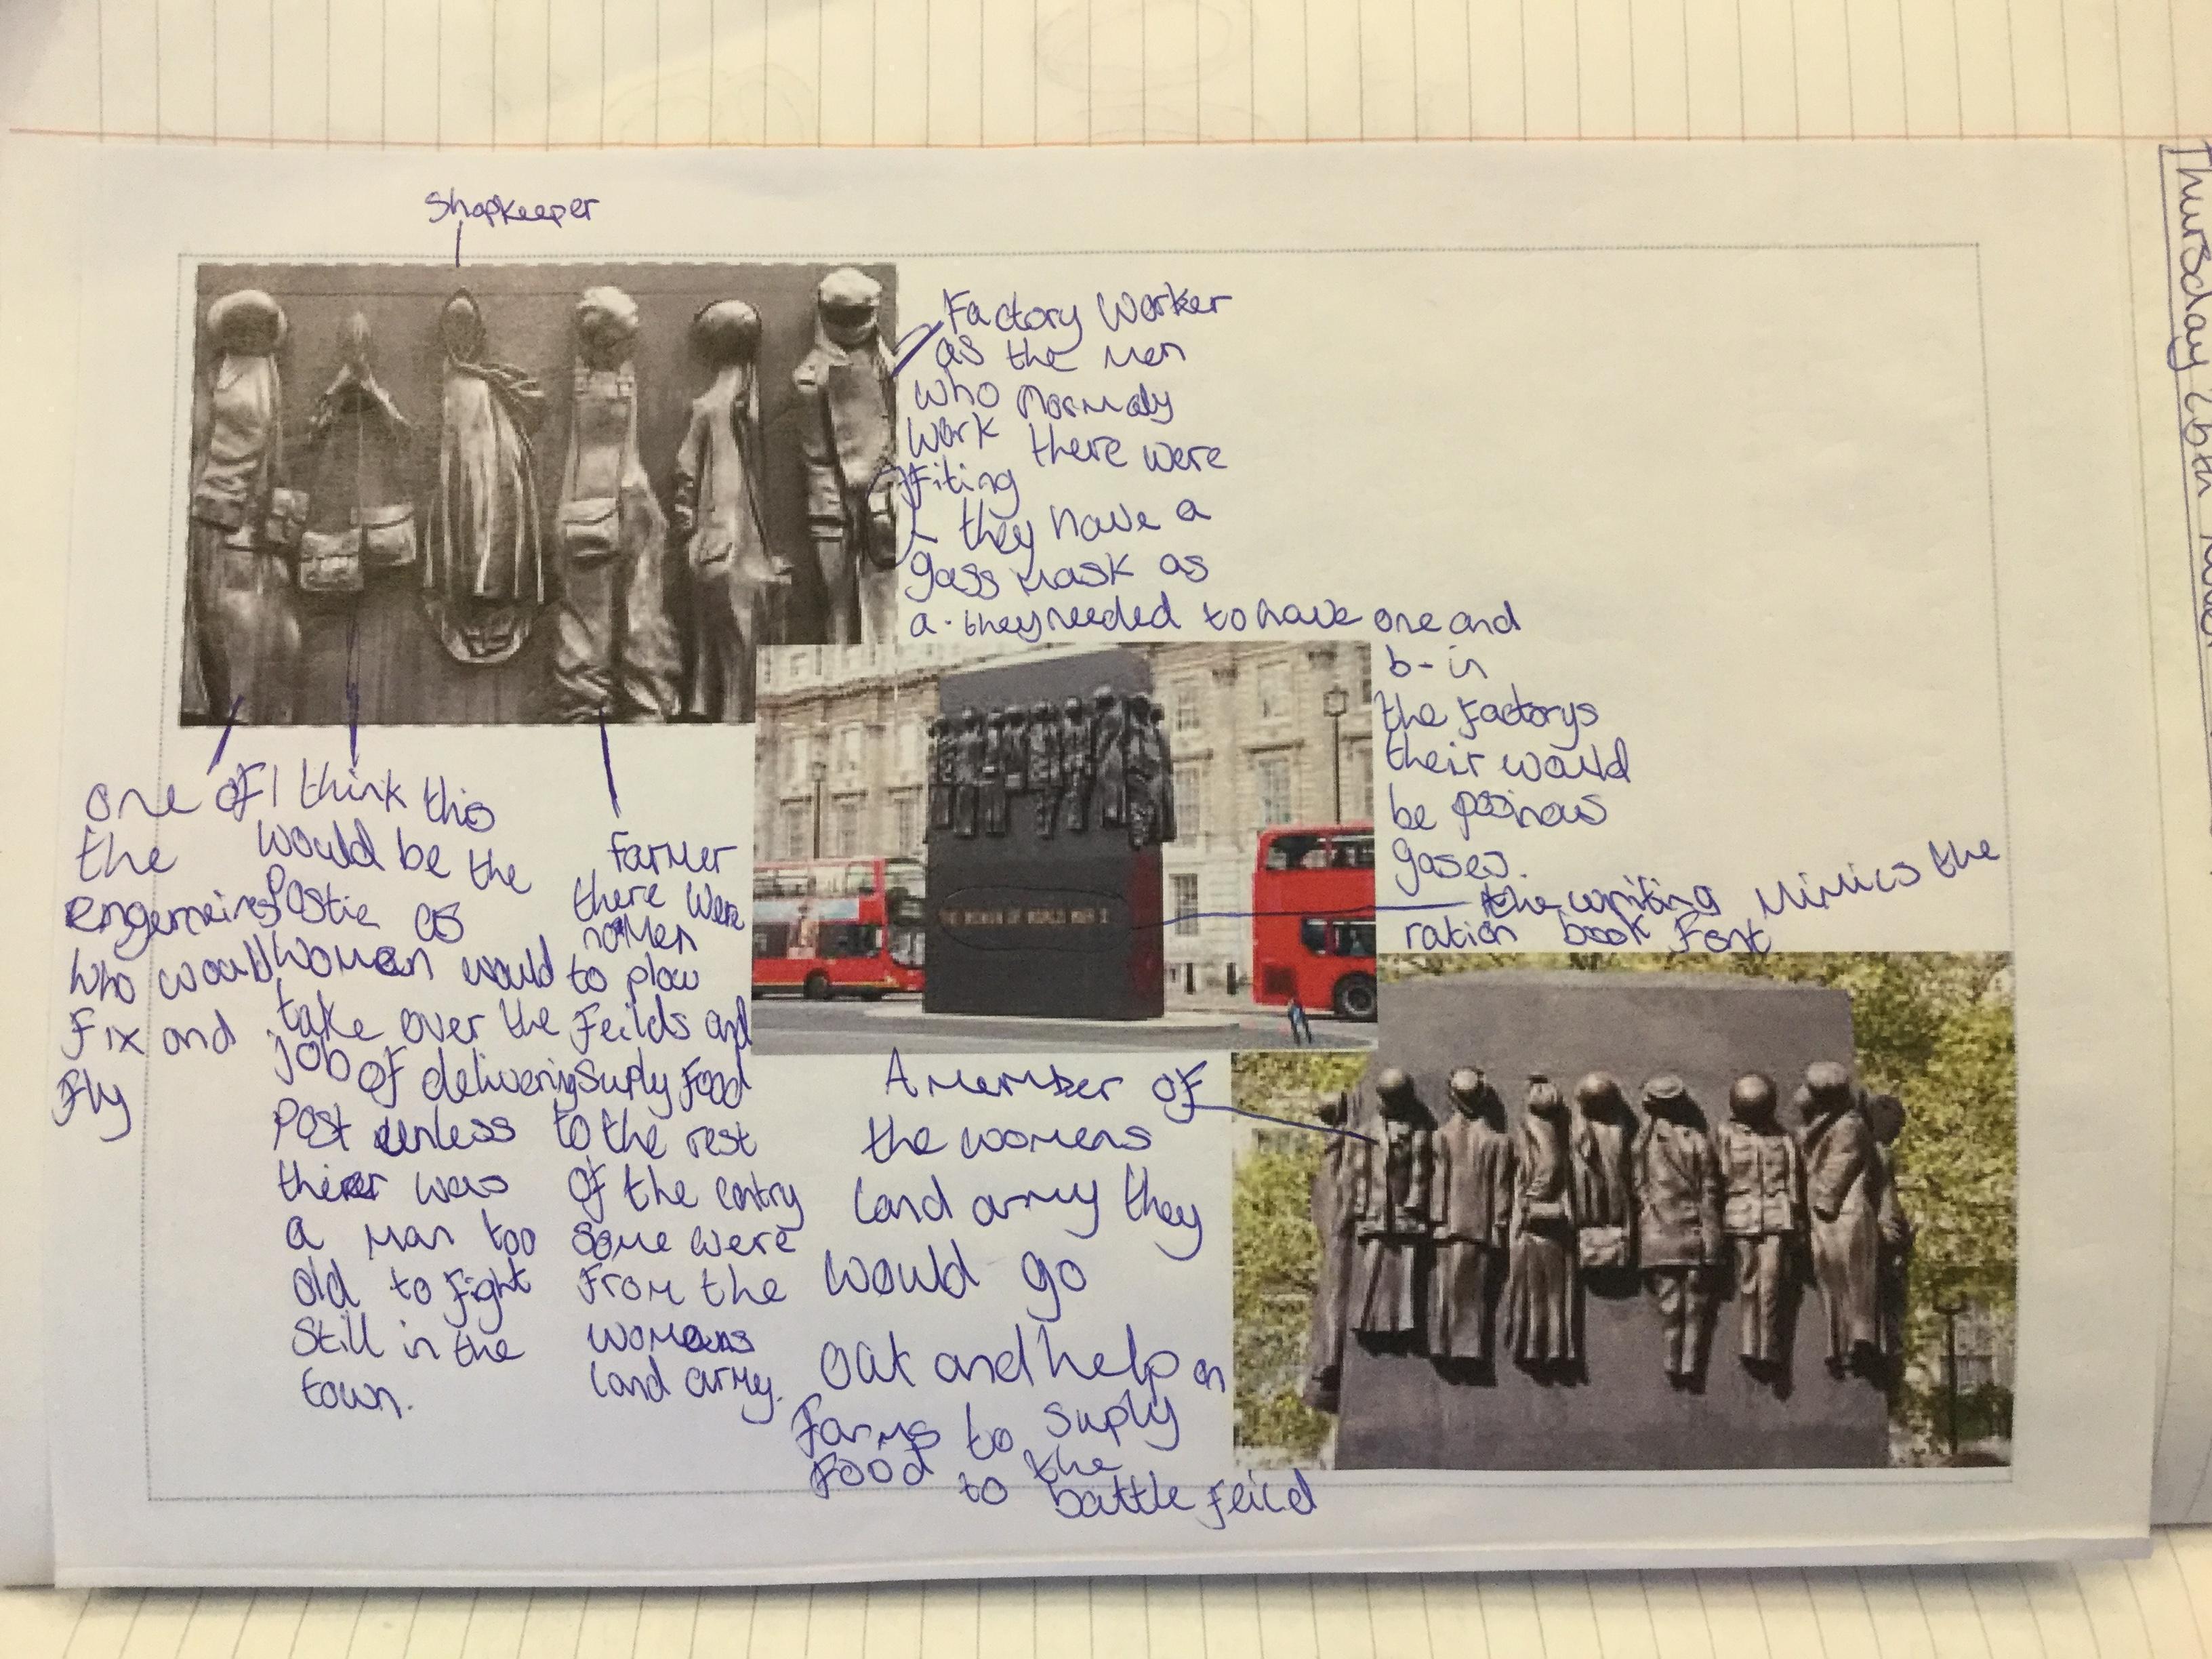 Shopkeeper
Factory Worker
as the men
who normaly
work there were
fiting
they have a
gass mask as
a. they needed to have one and
b- in
the factorys
their would
be
gases.
the writing mimics the
ration book font
THE WOMEN OF WORLD WAR II
one of
the
engeneirs
who would
fix and
fly
I think this
would be the
Postie as
woman would
take over the
job of delivering
Post unless
was
a man too
old to fight
still in the
town.
farmer
there were
no men
to plow
feilds and
suply food
to the rest
of the contry
some were
from the
womans
land army.
A member of
the womens
land army they
would go
out and help on
farms to suply
food to the
battle feild
Thursday